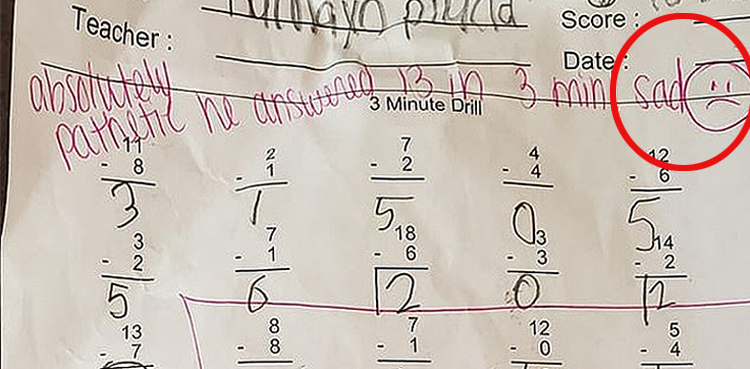 Score :
Teacher :
Date :
absolutely
pathetic he answered 13 in 3 min sad
3 Minute Drill
11 2 7 4 12
- 8 - 1 - 2 - 4 - 6
3 1 5 0 5
3 7 18 3 14
- 2 - 1 - 6 - 3 - 2
5 6 12 0 12
13 8 7 12 5
- 7 - 8 - 1 - 0 - 4